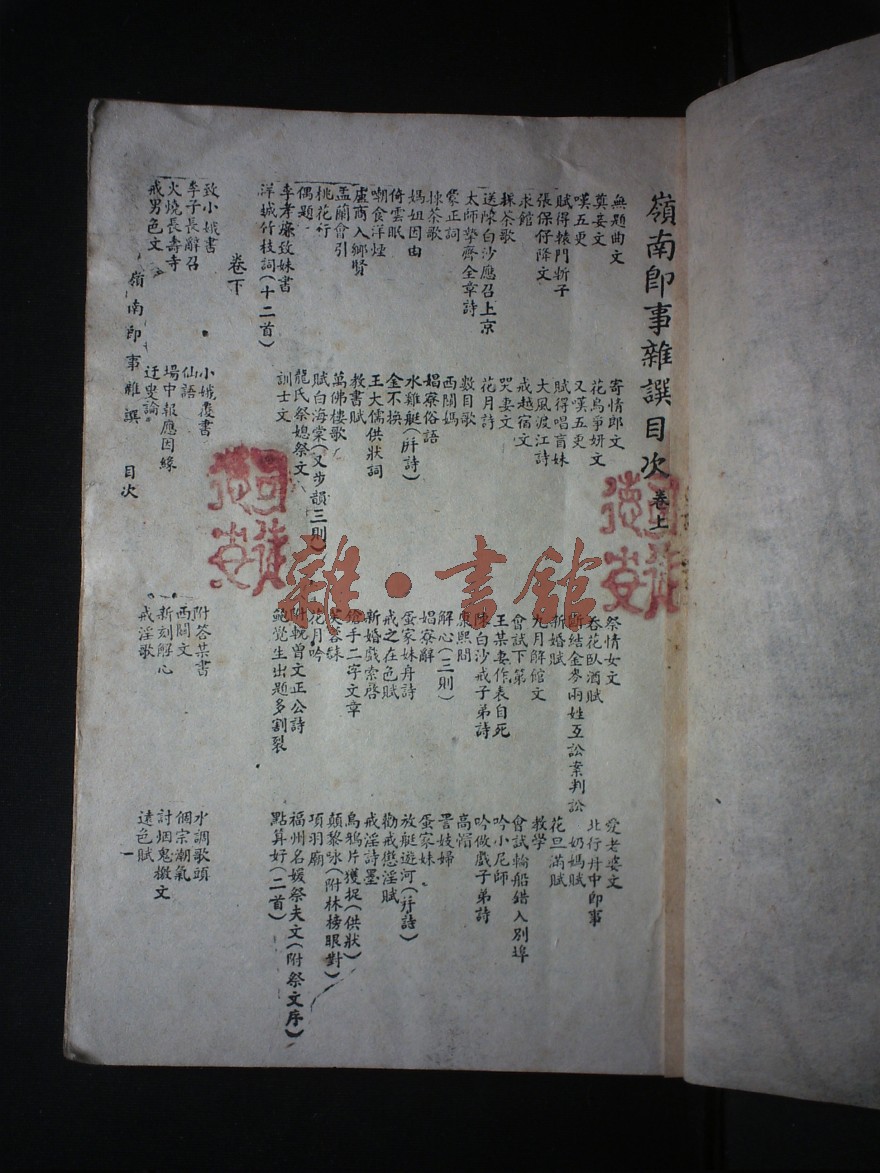 嶺南即事雜譔目次 卷上
無題曲文
寄情郎文
祭情女文
愛老婆文
奠妾文
花鳥爭妍文
吞花臥酒賦
北行舟中即事
嘆五更
又嘆五更
斷結金麥兩姓互訟案判訟
奶媽賦
賦得轅門斬子
賦得唱盲妹
新婚賦
花旦滿賦
張保仔降文
大風渡江詩
九月解館文
教學
求館
戒越宿文
會試下第
會試輪船錯入別埠
採茶歌
哭妻文
王某妻作表自死
吟小尼師
送陳白沙應召上京
花月詩
陳白沙戒子弟詩
吟做戲子弟詩
太師摯齊全章詩
數目歌
康熙問
高帽
蒙正詞
西關媽
解心(三則)
詈妓婦
揀茶歌
娼寮俗語
娼寮辭
蛋家妹
媽姐因由
水雞艇(并詩)
蛋家妹舟詩
放艇遊河(并詩)
倚雲眠
金不換
戒之在色賦
勸戒懲淫賦
嘲食洋煙
王大儒供狀詞
新婚戲索啓
戒淫詩墨
盧商入鄉賢
教書賦
槍手二字文章
烏鴉片獲捉(供狀)
盂蘭會引
萬佛樓歌
芙蓉訣
顛黎咏(附林榜眼對)
桃花行
賦白海棠(又步韻三則)
花月吟
項羽廟
偶題
龍氏祭媳祭文
附輓曾文正公詩
福州名媛祭夫文(附祭文序)
李孝廉致妹書
訓士文
鮑覺生出題多割裂
點算好(二首)
洋城竹枝詞(十二首)
卷下
致小娥書
小娥覆書
附答某書
水調歌頭
李子長辭召
仙語
西關文
個宗潮氣
火燒長壽寺
場中報應因緣
新刻解心
討烟鬼檄文
戒男色文
迂叟論
戒淫歌
遠色賦
嶺南即事雜譔 目次 一
雜·書館